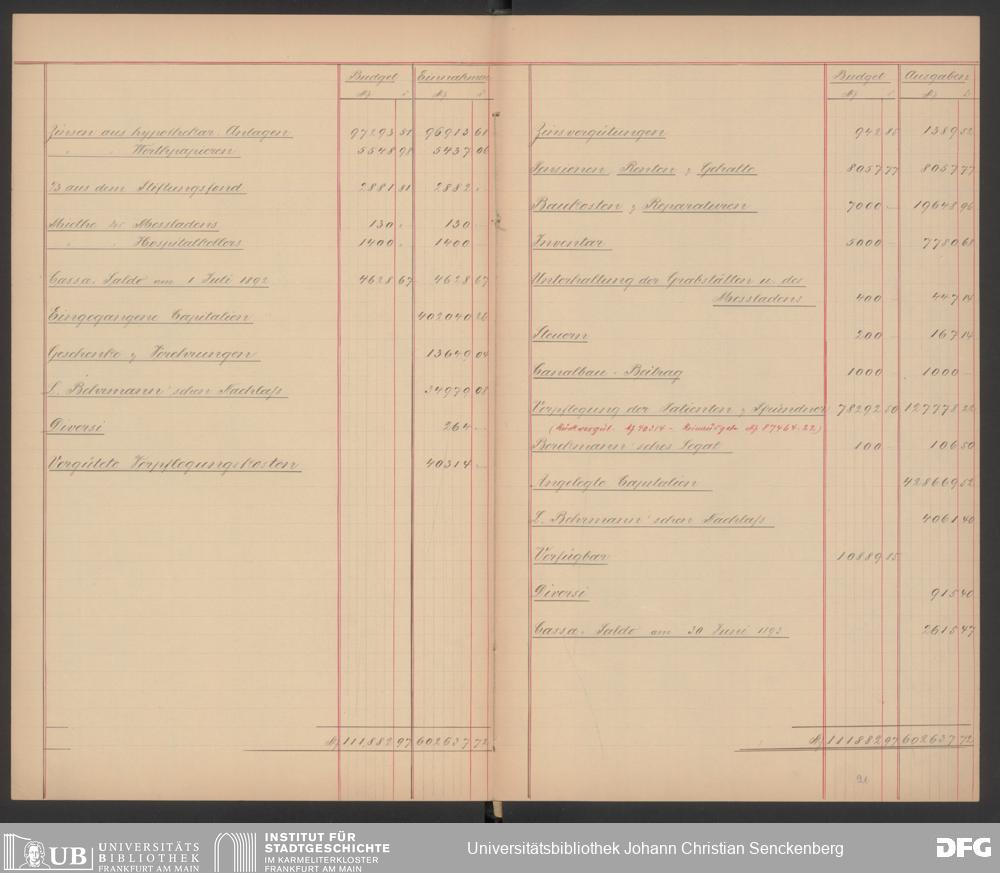 Budget Einnahmen
M ₰ M ₰
Zinsen aus hypothekar. Anlagen 97293 51 96913 61
" " Werthpapieren 5548 98 5437 06
⅔ aus dem Stiftungsfond 2881 81 2882 -
Miethe des Messladens 130 - 130 -
" " Hospitalkellers 1400 - 1400 -
Cassa-Saldo am 1 Juli 1892 4628 67 4628 67
Eingegangene Capitalien 402040 26
Geschenke & Verehrungen 13649 04
L. Behrmann'schen Nachlaß 34979 08
Diversi 264 -
Vergütete Verpflegungskosten 40314 -
M 111882 97 602637 72
Budget Ausgaben
M ₰ M ₰
Zinsvergütungen 942 15 1389 52
Pensionen, Renten & Gehalte 8057 77 8057 77
Baukosten & Reparaturen 7000 - 19648 96
Inventar 5000 - 7780 68
Unterhaltung der Grabstätten u. des
Messladens 400 - 447 14
Steuern 200 - 167 14
Canalbau-Beitrag 1000 - 1000 -
Verpflegung der Patienten & Pfründner 78292 50 127778 22
(Rückvergüt. M 40314 - Reinausgabe M 87464.22)
Berckmann'sches Legat 100 - 106 50
Angelegte Capitalien 428669 52
L. Behrmann'schen Nachlaß 4061 40
Verfügbar 10889 15
Diversi 915 40
Cassa-Saldo am 30 Juni 1893 2615 47
M 111882 97 602637 72
91
UB UNIVERSITÄTS
BIBLIOTHEK
FRANKFURT AM MAIN
INSTITUT FÜR
STADTGESCHICHTE
IM KARMELITERKLOSTER
FRANKFURT AM MAIN
Universitätsbibliothek Johann Christian Senckenberg
DFG